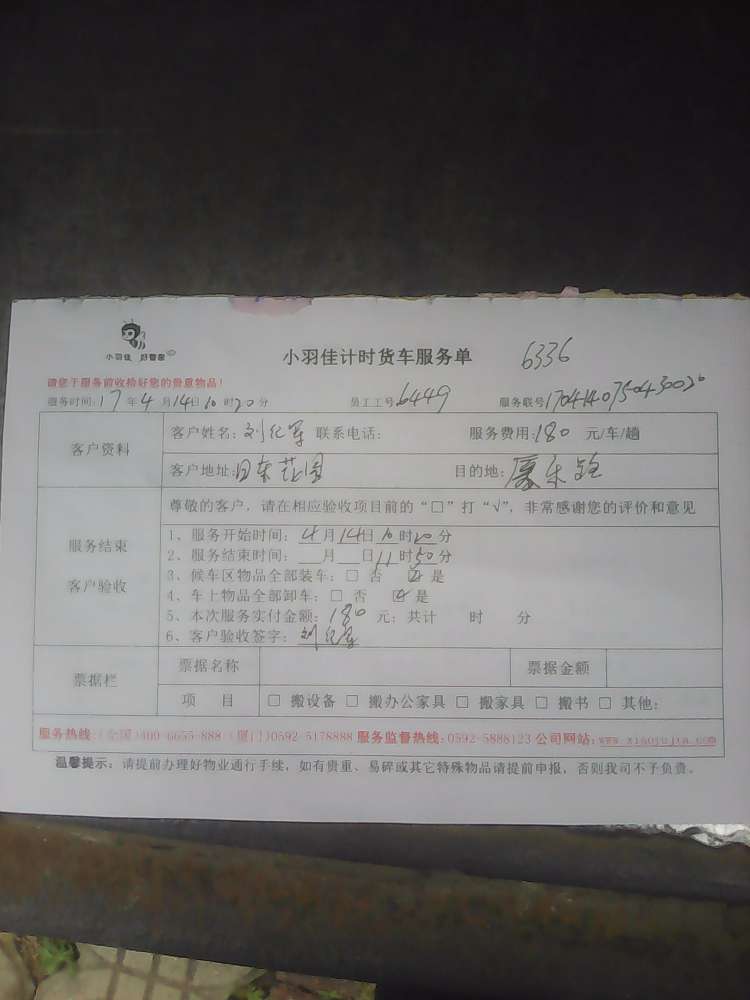 小羽佳 好管家
小羽佳计时货车服务单 6336
请您于服务前收检好您的贵重物品!
服务时间:17年4月14日10时20分 员工工号6449 服务联号170414075043002
客户资料
客户姓名:刘纪军 联系电话: 服务费用:180 元/车/趟
客户地址:日东花园 目的地:
尊敬的客户,请在相应验收项目前的“□”打“√”,非常感谢您的评价和意见
服务结束
客户验收
1、服务开始时间:4月14日10时20分
2、服务结束时间:__月__日11时50分
3、候车区物品全部装车:□ 否 ☑ 是
4、车上物品全部卸车:□ 否 ☑ 是
5、本次服务实付金额:180元;共计 时 分
6、客户验收签字:刘纪军
票据栏
票据名称 票据金额
项 目 □ 搬设备 □ 搬办公家具 □ 搬家具 □ 搬书 □ 其他:
服务热线:(全国)400-6655-888 (厦门)0592-5178888 服务监督热线:0592-5888123 公司网站:www.xiaoyujia.com
温馨提示:请提前办理好物业通行手续,如有贵重、易碎或其它特殊物品请提前申报,否则我司不予负责。